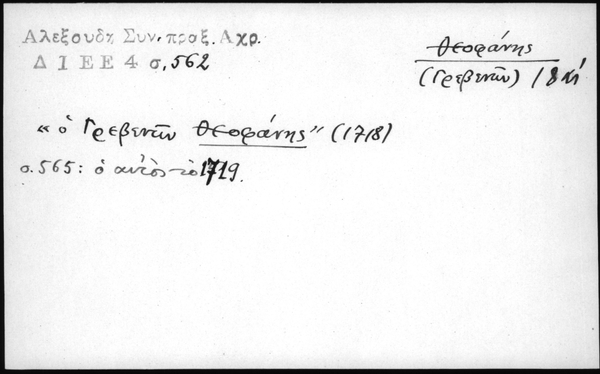 Αλεξουδη Συν. πραξ. Αχρ.
Δ Ι Ε Ε 4 σ, 562
Θεοφάνης
(Γρεβενῶν) 18 κ΄
« ὁ Γρεβενῶν Θεοφάνης" (1718)
σ. 565: ὁ αὐτὸς τὸ 1719.